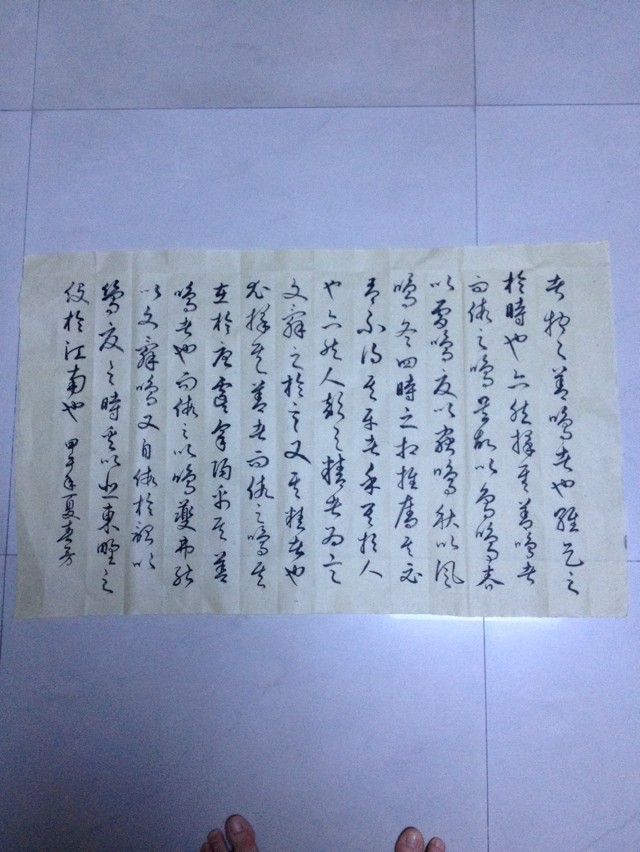 者物之善鳴者也維天之
於時也亦然擇其善鳴者
而假之鳴是故以鳥鳴春
以雷鳴夏以蟲鳴秋以風
鳴冬四時之相推奪其必
有不得其平者乎其於人
也亦然人聲之精者為言
文辭之於言又其精者也
尤擇其善者而假之鳴其
在於唐虞咎陶禹其善
鳴者也而假之以鳴夔弗能
以文辭鳴又自假於韶以
鳴夏之時以東野之
役於江南也 甲午年夏